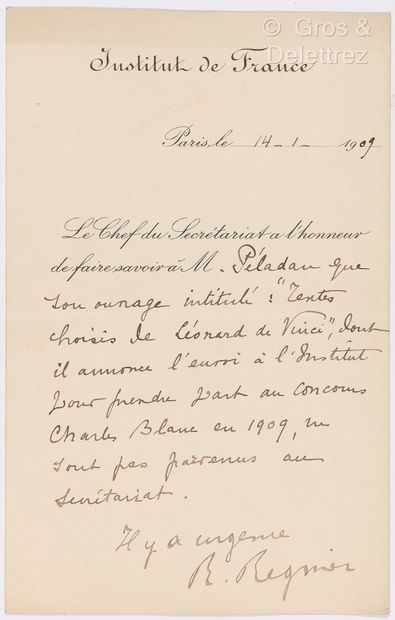 © Gros &
Delettrez
Institut de France
Paris, le 14 - 1 - 1909
Le Chef du Secrétariat a l'honneur
de faire savoir à M. Péladan que
son ouvrage intitulé : "Textes
choisis de Léonard de Vinci", dont
il annonce l'envoi à l'Institut
pour prendre part au concours
Charles Blanc en 1909, ne
sont pas parvenus au
Secrétariat.
Il y a urgence
R. Regnier